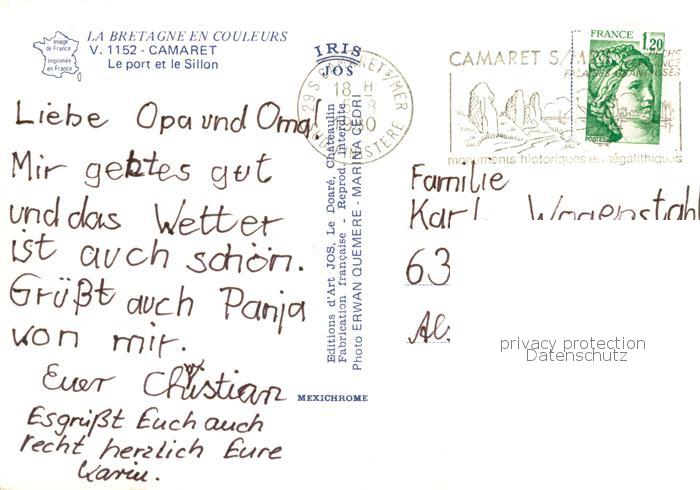 LA BRETAGNE EN COULEURS
V. 1152 - CAMARET
Le port et le Sillon
Image de France
Imprimée en France
IRIS
JOS
18 H
FRANCE 1,20
POSTES
CAMARET S/M
monuments historiques et mégalithiques
Liebe Opa und Oma!
Mir gehtes gut
und das Wetter
ist auch schön.
Grüßt auch Panja
von mir.
Euer Christian
Esgrüßt Euch auch
recht herzlich Eure
Karin.
Editions d'Art JOS, Le Doaré, Châteaulin
Fabrication française - Reprod. interdite
Photo ERWAN QUEMERE - MARINA CEDRI
MEXICHROME
Familie
Karl Wagenstahl
63
privacy protection
Datenschutz